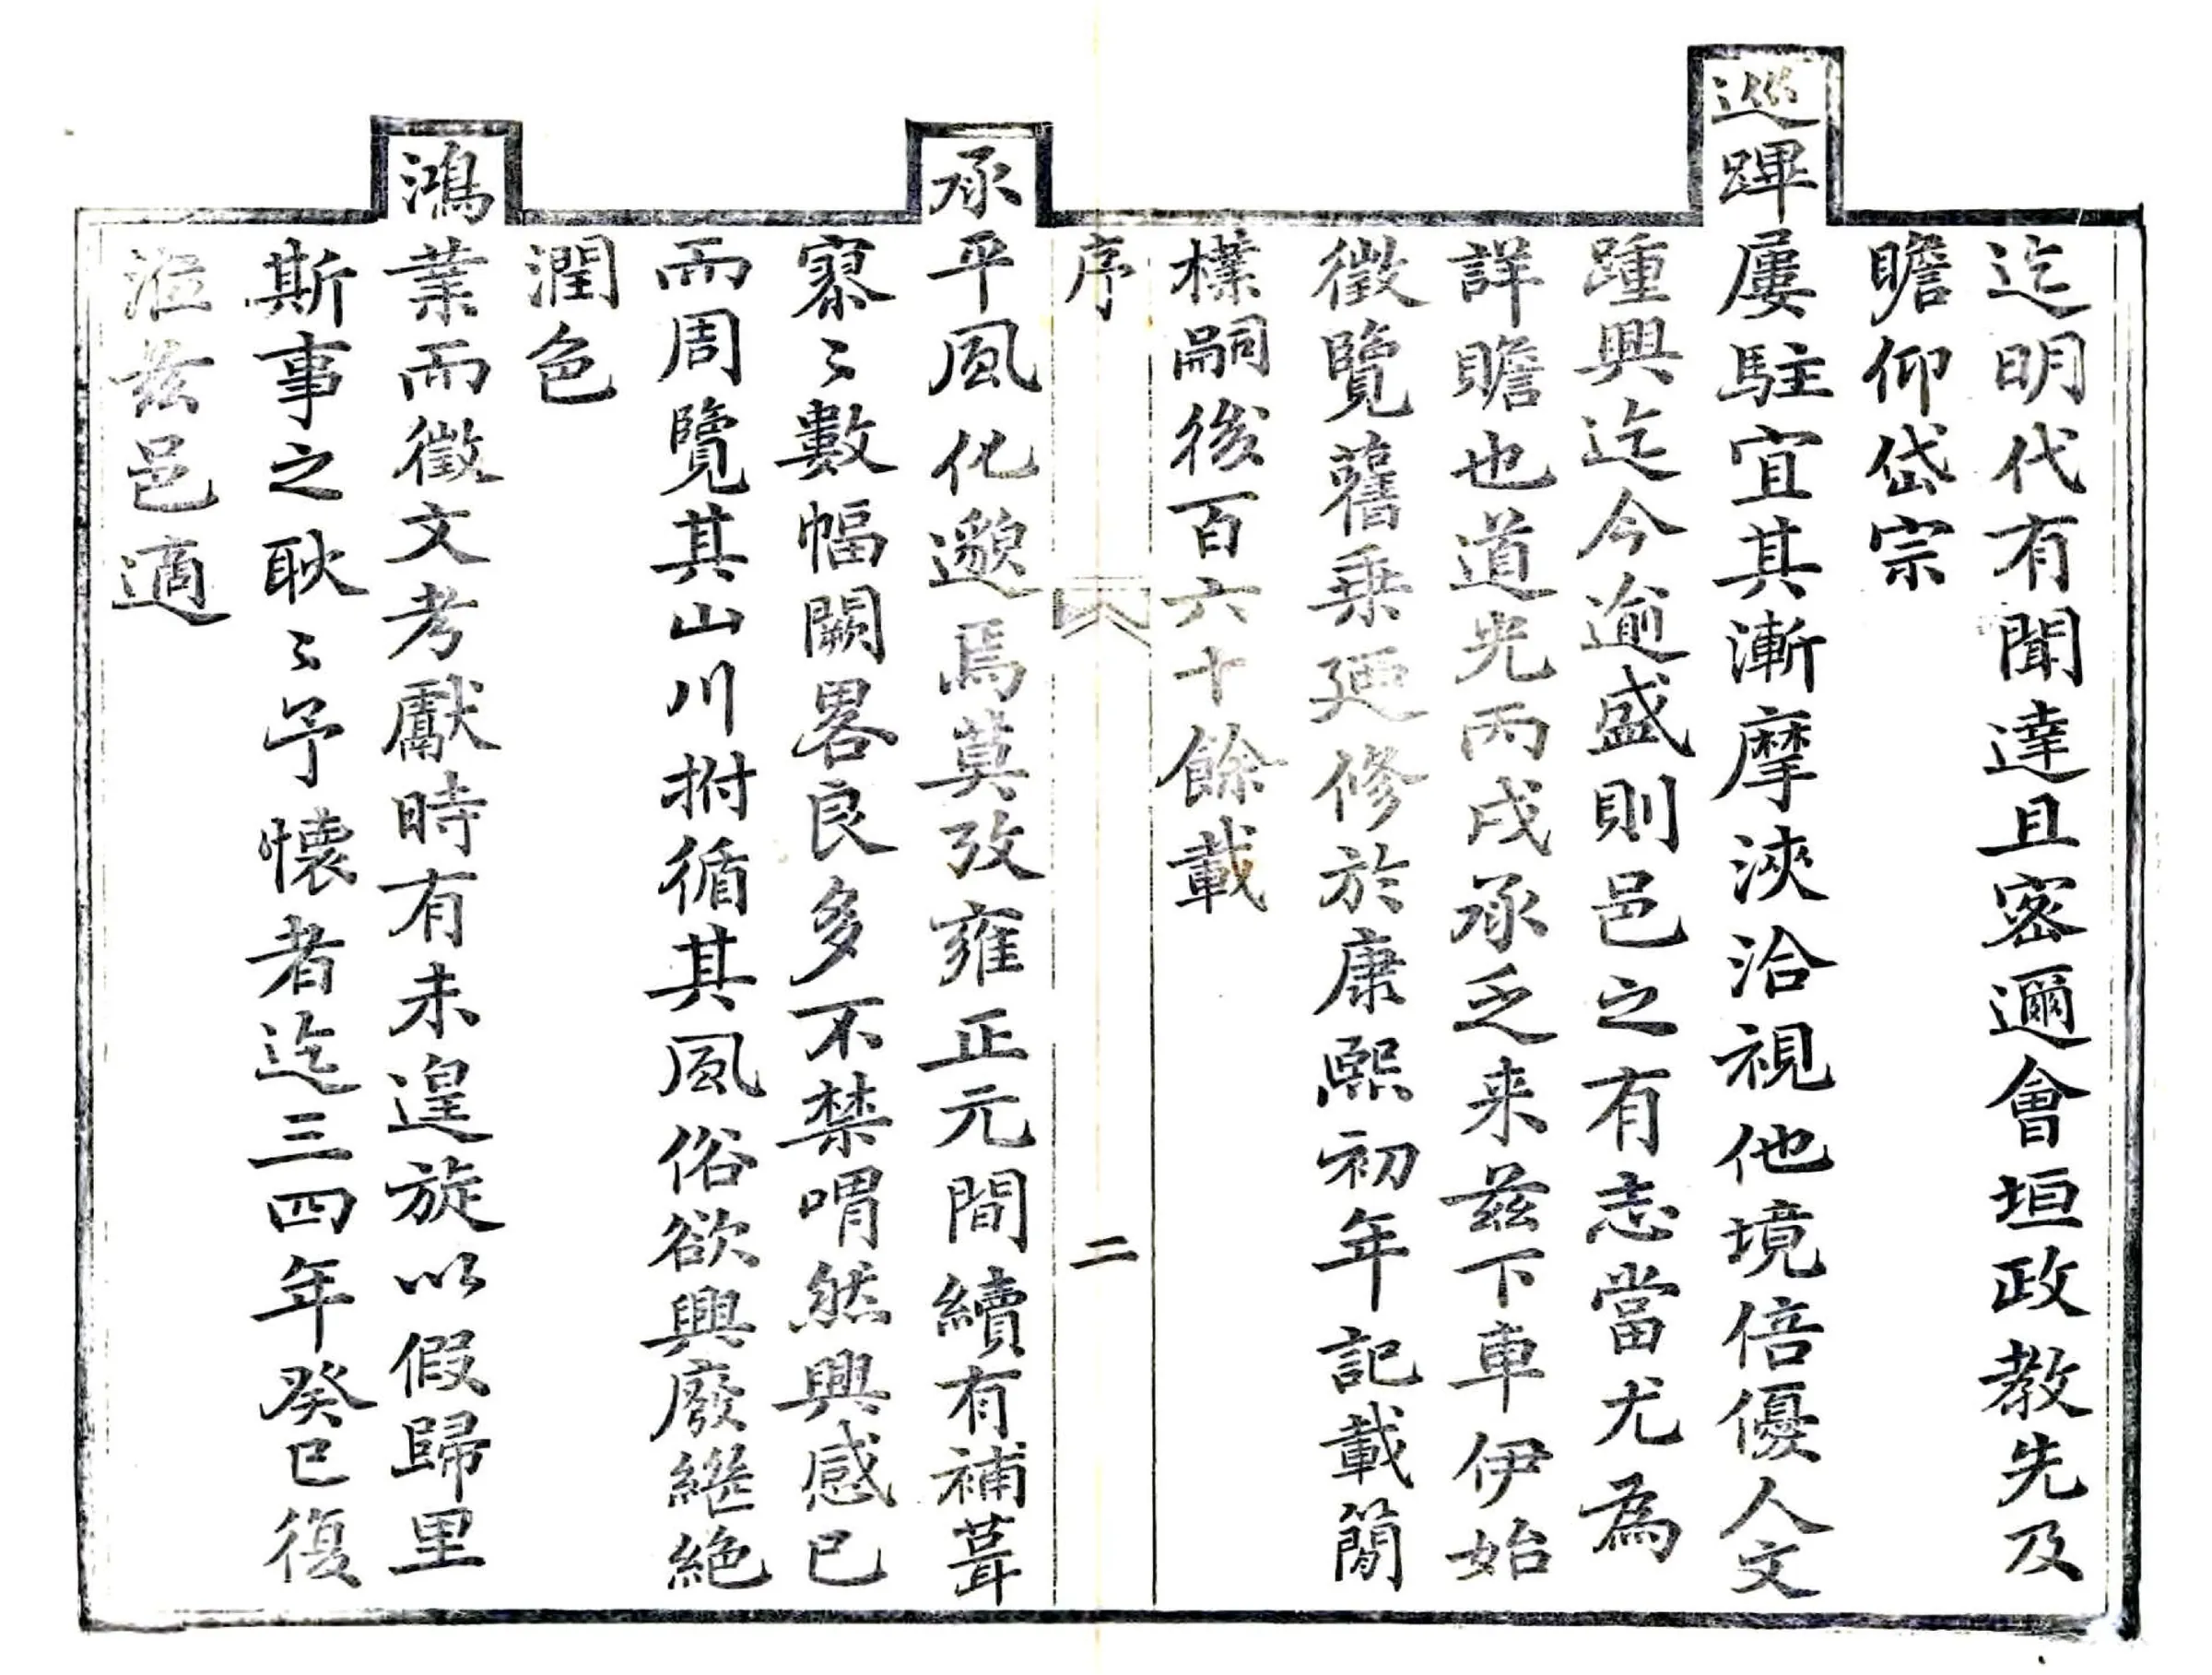 迄明代有聞達且密邇會垣政教先及
瞻仰岱宗
巡蹕屢駐宜其漸摩浹洽視他境倍優人文
踵興迄今逾盛則邑之有志當尤為
詳贍也道光丙戌承乏来兹下車伊始
徵覽舊乗廼修於康熙初年記載簡
樸嗣後百六十餘載
序
二
承平風化邈焉莫攷雍正元間續有補葺
寥〻數幅闕畧良多不禁喟然興感已
而周覽其山川拊循其風俗欲興廢繼絶
潤色
鴻業而徵文考獻時有未遑旋以假歸里
斯事之耿〻予懷者迄三四年癸巳復
涖兹邑適